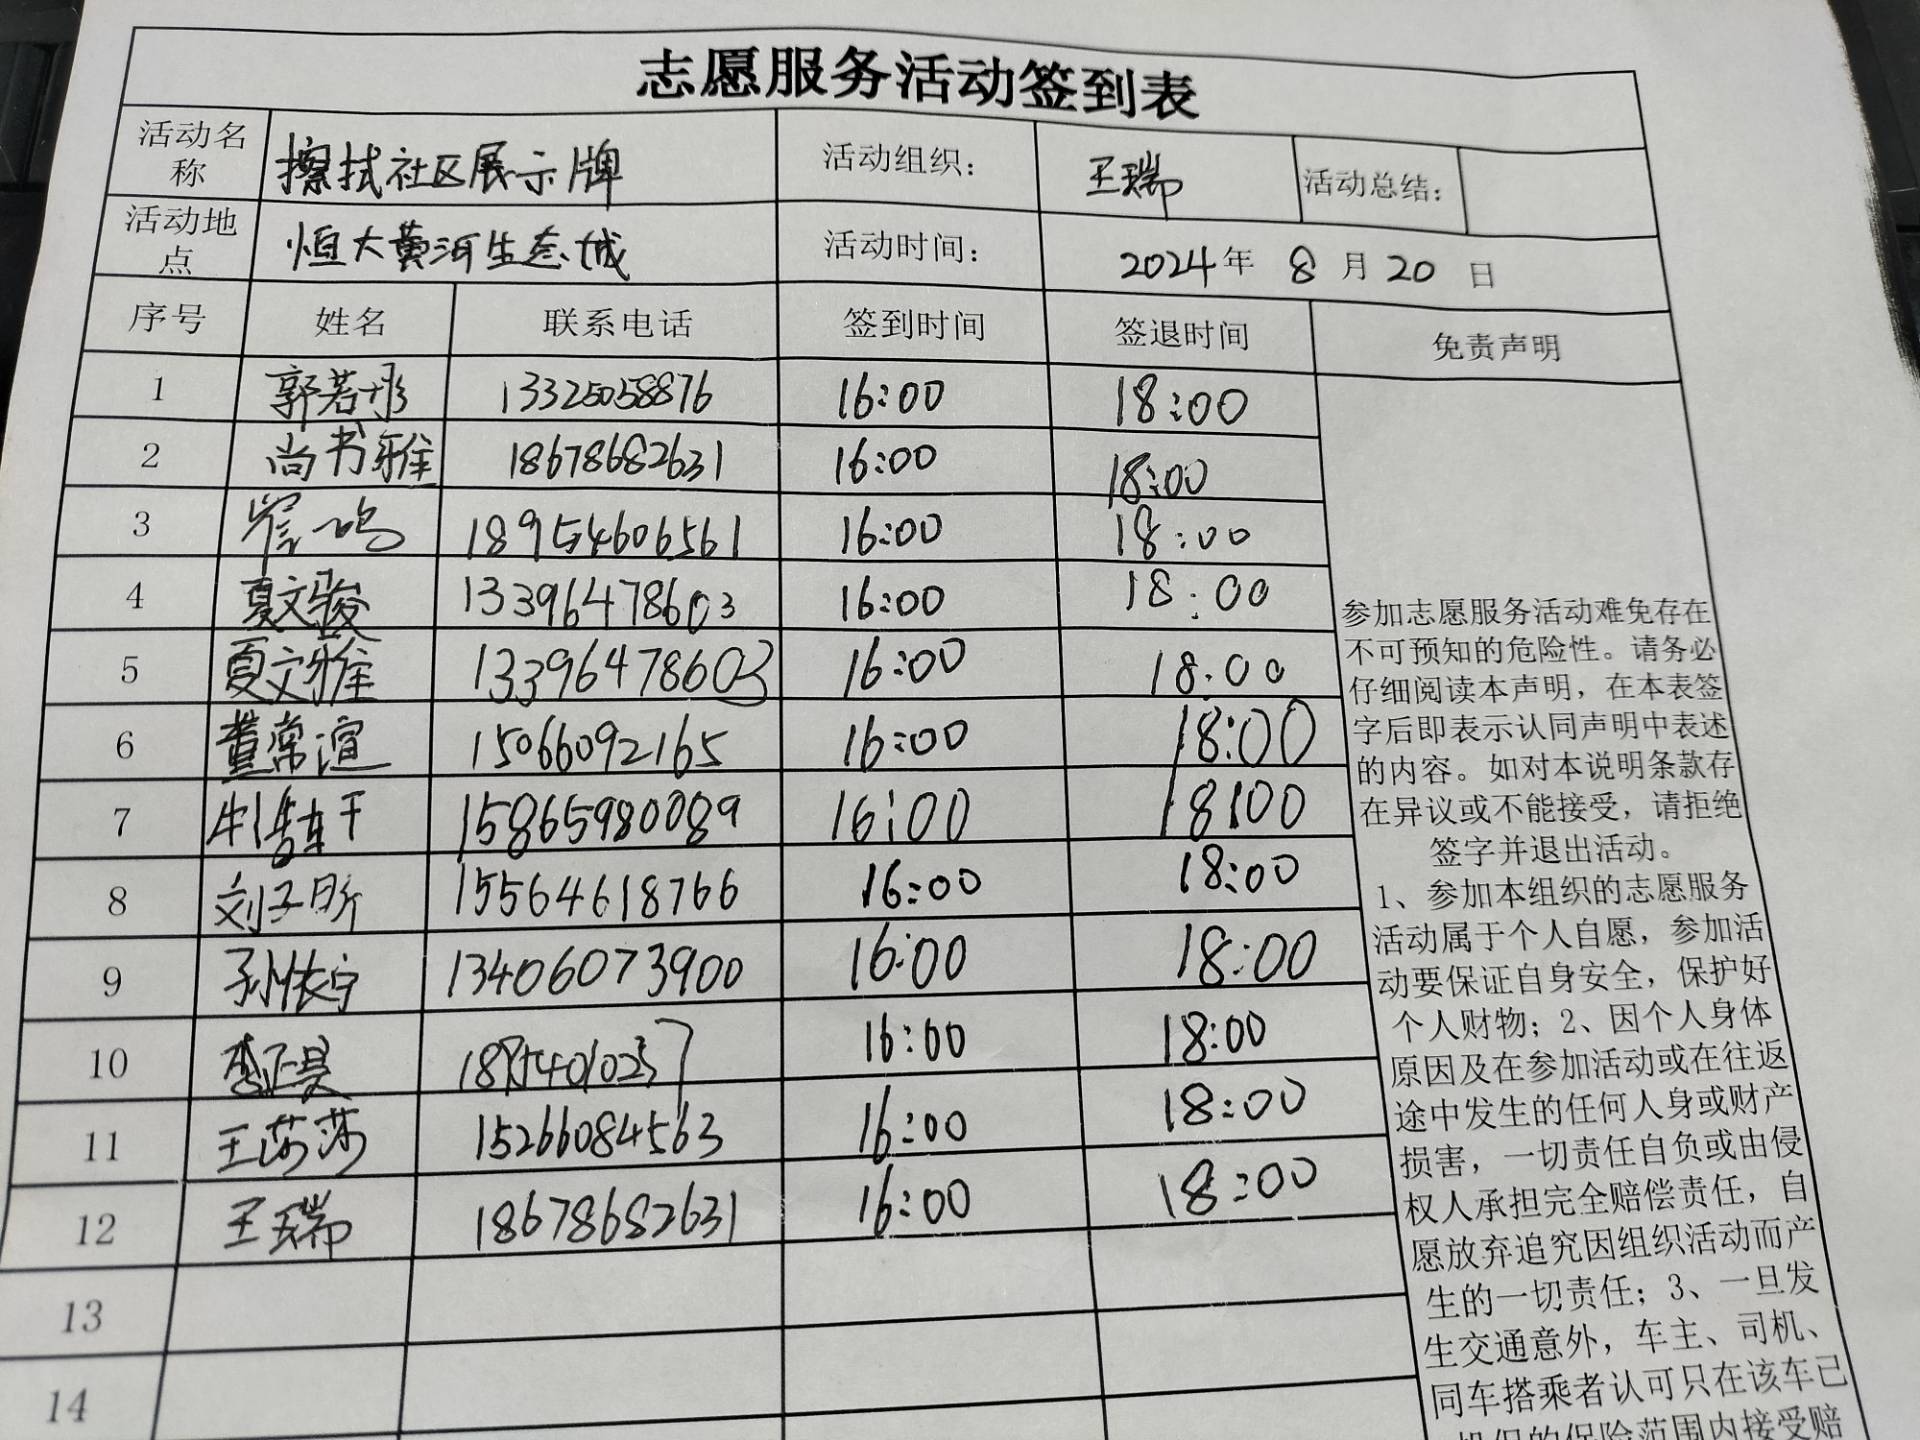 志愿服务活动签到表
活动名称 擦拭社区展示牌 活动组织： 王瑞 活动总结：
活动地点 恒大黄河生态城 活动时间： 2024年 8月20日
序号 姓名 联系电话 签到时间 签退时间 免责声明
1 郭若彤 13325058876 16:00 18:00
2 尚书雅 18678682631 16:00 18:00
3 崔一鸣 18954606561 16:00 18:00
4 夏文骏 13396478603 16:00 18:00
5 夏文雅 13396478603 16:00 18:00
6 董常渲 15066092165 16:00 18:00
7 15865980089 16:00 18:00
8 刘子昕 15564618766 16:00 18:00
9 13406073900 16:00 18:00
10 李正昊 16:00 18:00
11 王莎莎 15266084563 16:00 18:00
12 王瑞 18678682631 16:00 18:00
13
14
参加志愿服务活动难免存在
不可预知的危险性。请务必
仔细阅读本声明，在本表签
字后即表示认同声明中表述
的内容。如对本说明条款存
在异议或不能接受，请拒绝
签字并退出活动。
1、参加本组织的志愿服务
活动属于个人自愿，参加活
动要保证自身安全，保护好
个人财物；2、因个人身体
原因及在参加活动或在往返
途中发生的任何人身或财产
损害，一切责任自负或由侵
权人承担完全赔偿责任，自
愿放弃追究因组织活动而产
生的一切责任；3、一旦发
生交通意外，车主、司机、
同车搭乘者认可只在该车已
投保的保险范围内接受赔